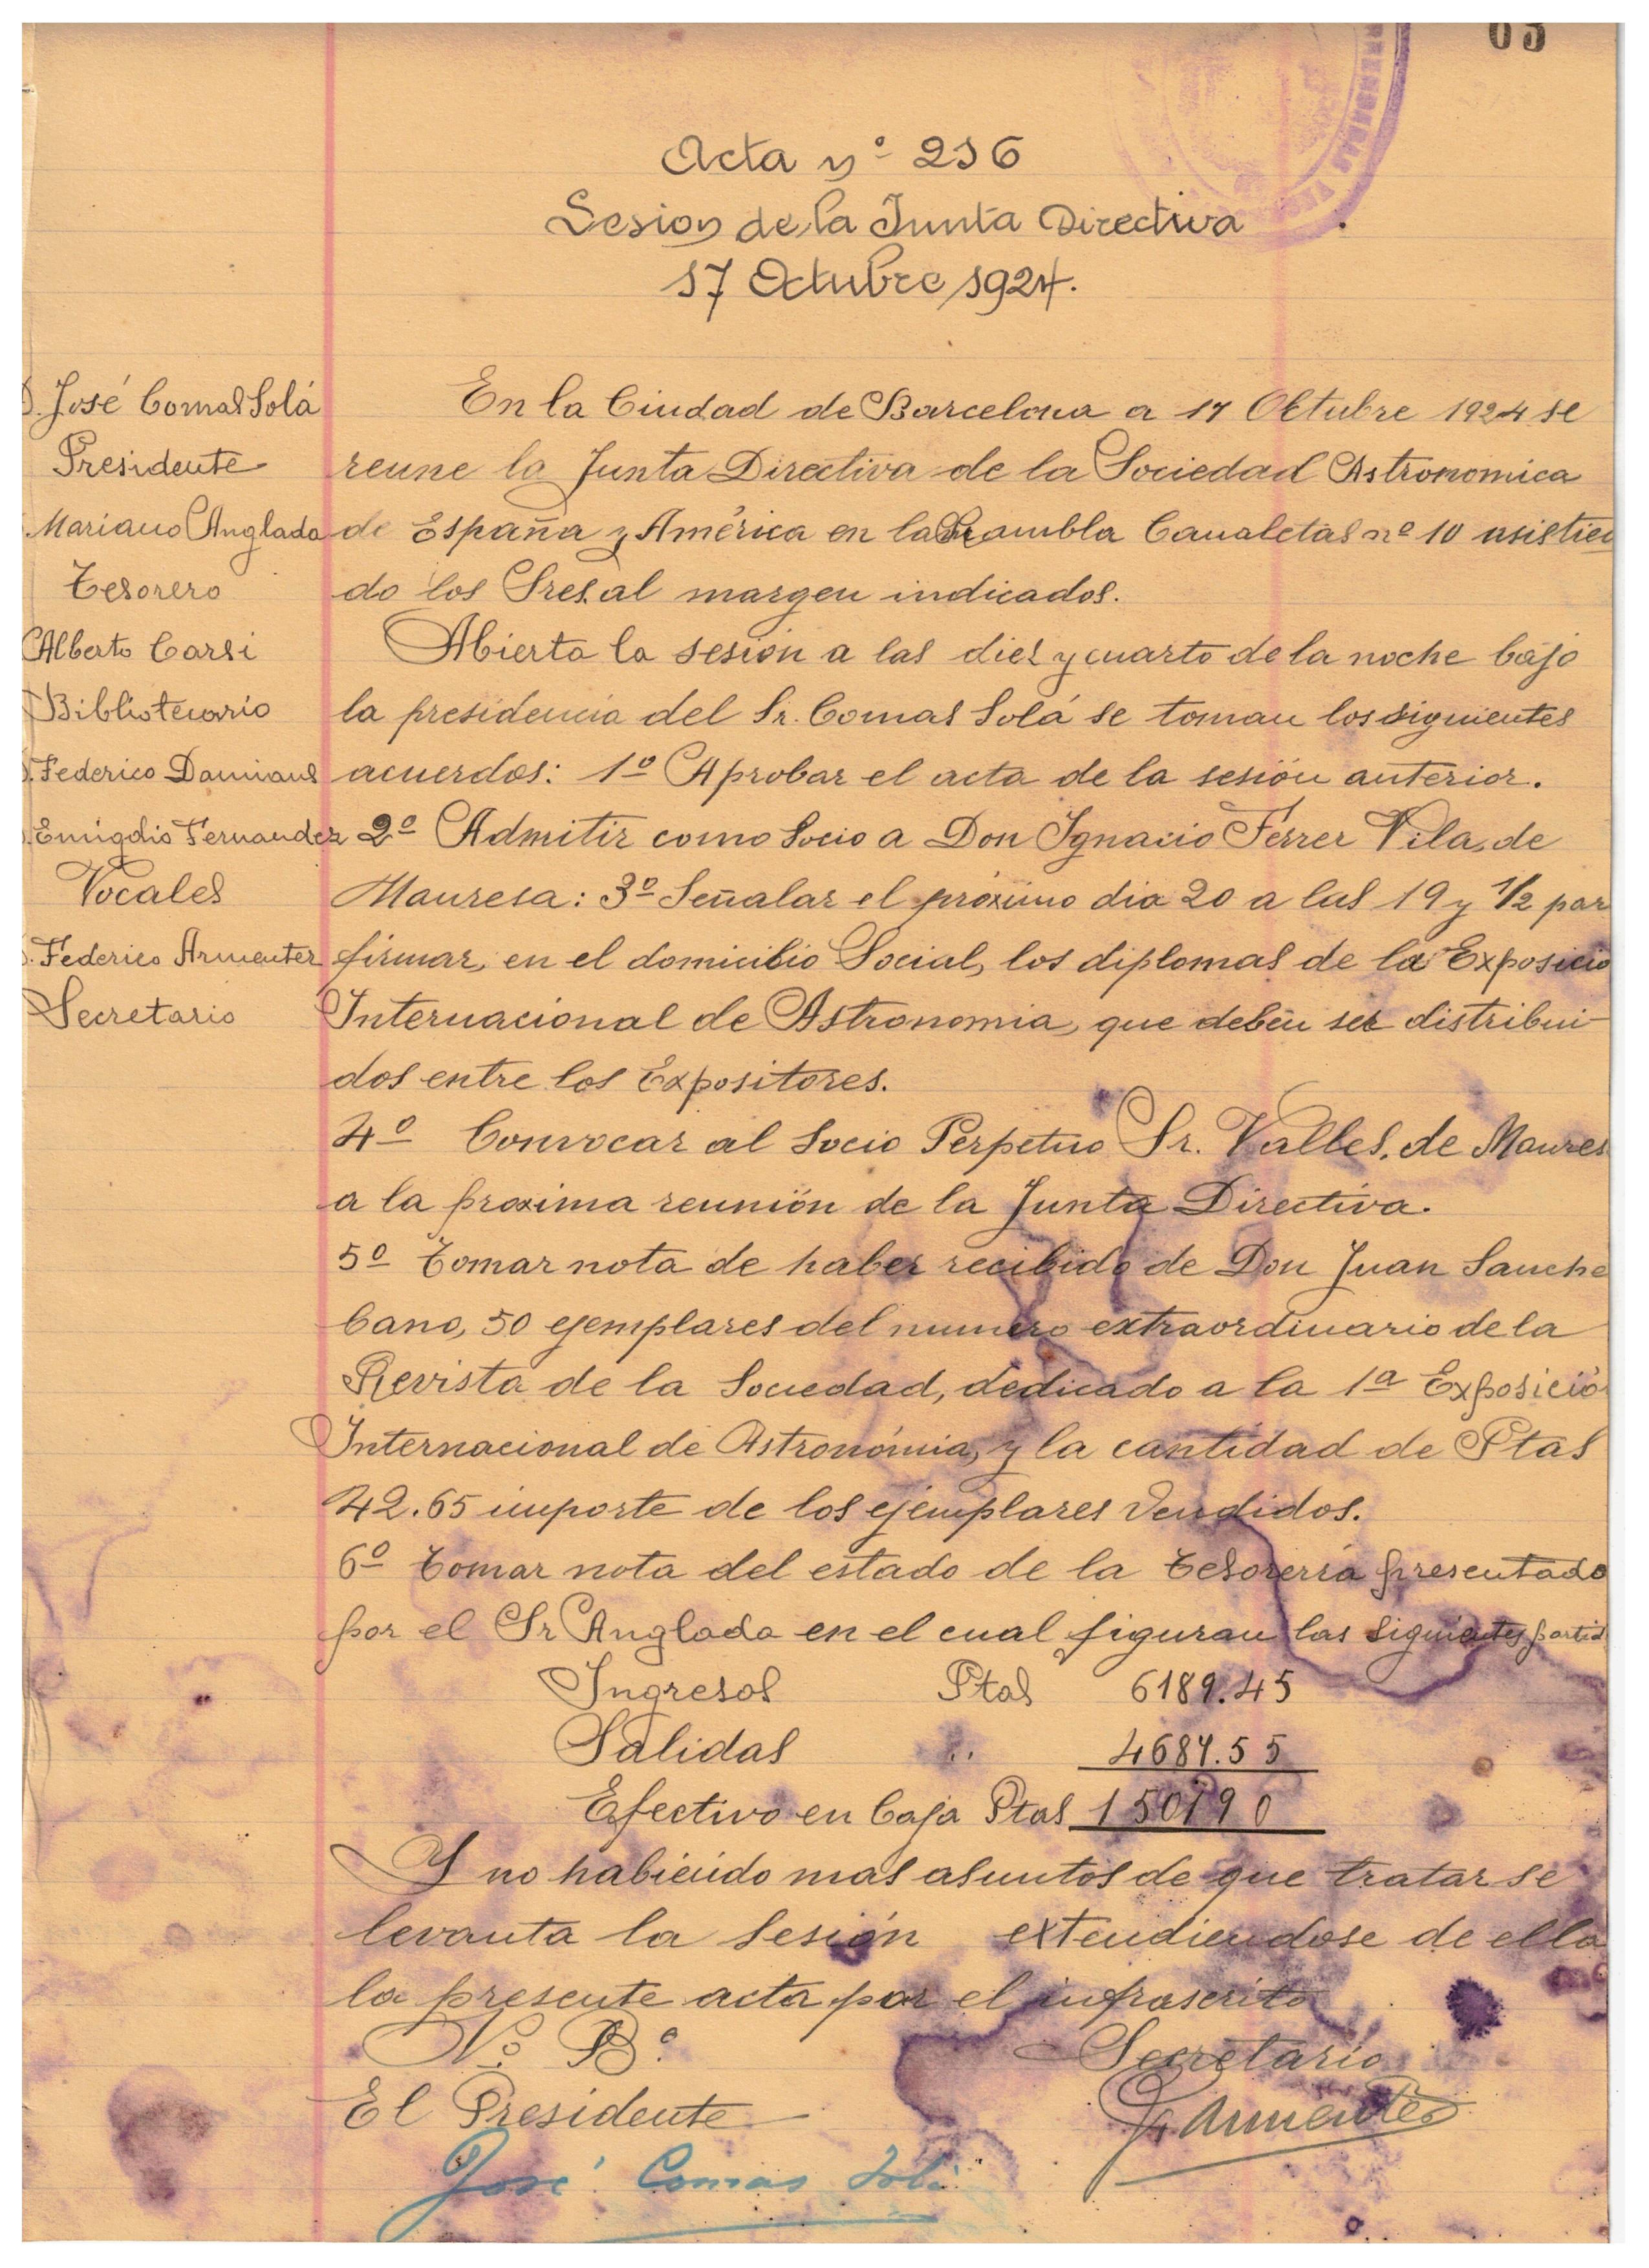 63
Acta nº 216
Sesion de la Junta Directiva
17 Octubre 1924.
D. José Comas Solá
Presidente
Mariano Anglada
Tesorero
Alberto Carsi
Bibliotecario
D. Federico Damians
D. Emigdio Fernandez
Vocales
D. Federico Armenter
Secretario
En la Ciudad de Barcelona a 17 Octubre 1924 se
reune la Junta Directiva de la Sociedad Astronomica
de España y América en la Rambla Canaletas nº 10 asistien
do los Sres. al margen indicados.
Abierta la sesión a las diez y cuarto de la noche bajo
la presidencia del Sr. Comas Solá se toman los siguientes
acuerdos: 1º Aprobar el acta de la sesión anterior.
2º Admitir como Socio a Don Ignacio Ferrer Vila, de
Manresa: 3º Señalar el próximo dia 20 a las 19 y 1/2 par
firmar, en el domicilio Social, los diplomas de la Exposició
Internacional de Astronomia, que deben ser distribui-
dos entre los Expositores.
4º Convocar al Socio Perpetuo Sr. Valles, de Manres
a la proxima reunión de la Junta Directiva.
5º Tomar nota de haber recibido de Don Juan Sanche
Cano, 50 ejemplares del numero extraordinario de la
Revista de la Sociedad, dedicado a la 1ª Exposició
Internacional de Astronómia, y la cantidad de Ptas
42.65 importe de los ejemplares vendidos.
6º Tomar nota del estado de la Tesorería presentado
por el Sr Anglada en el cual figuran las siguientes partid
Ingresos Ptas 6189.45
Salidas " 4687.55
Efectivo en Caja Ptas 150190
Y no habiendo mas asuntos de que tratar se
levanta la sesión extendiendose de ella
la presente acta por el infrascrito
Vº Bº Secretario
El Presidente F. Armenter
José Comas Solá